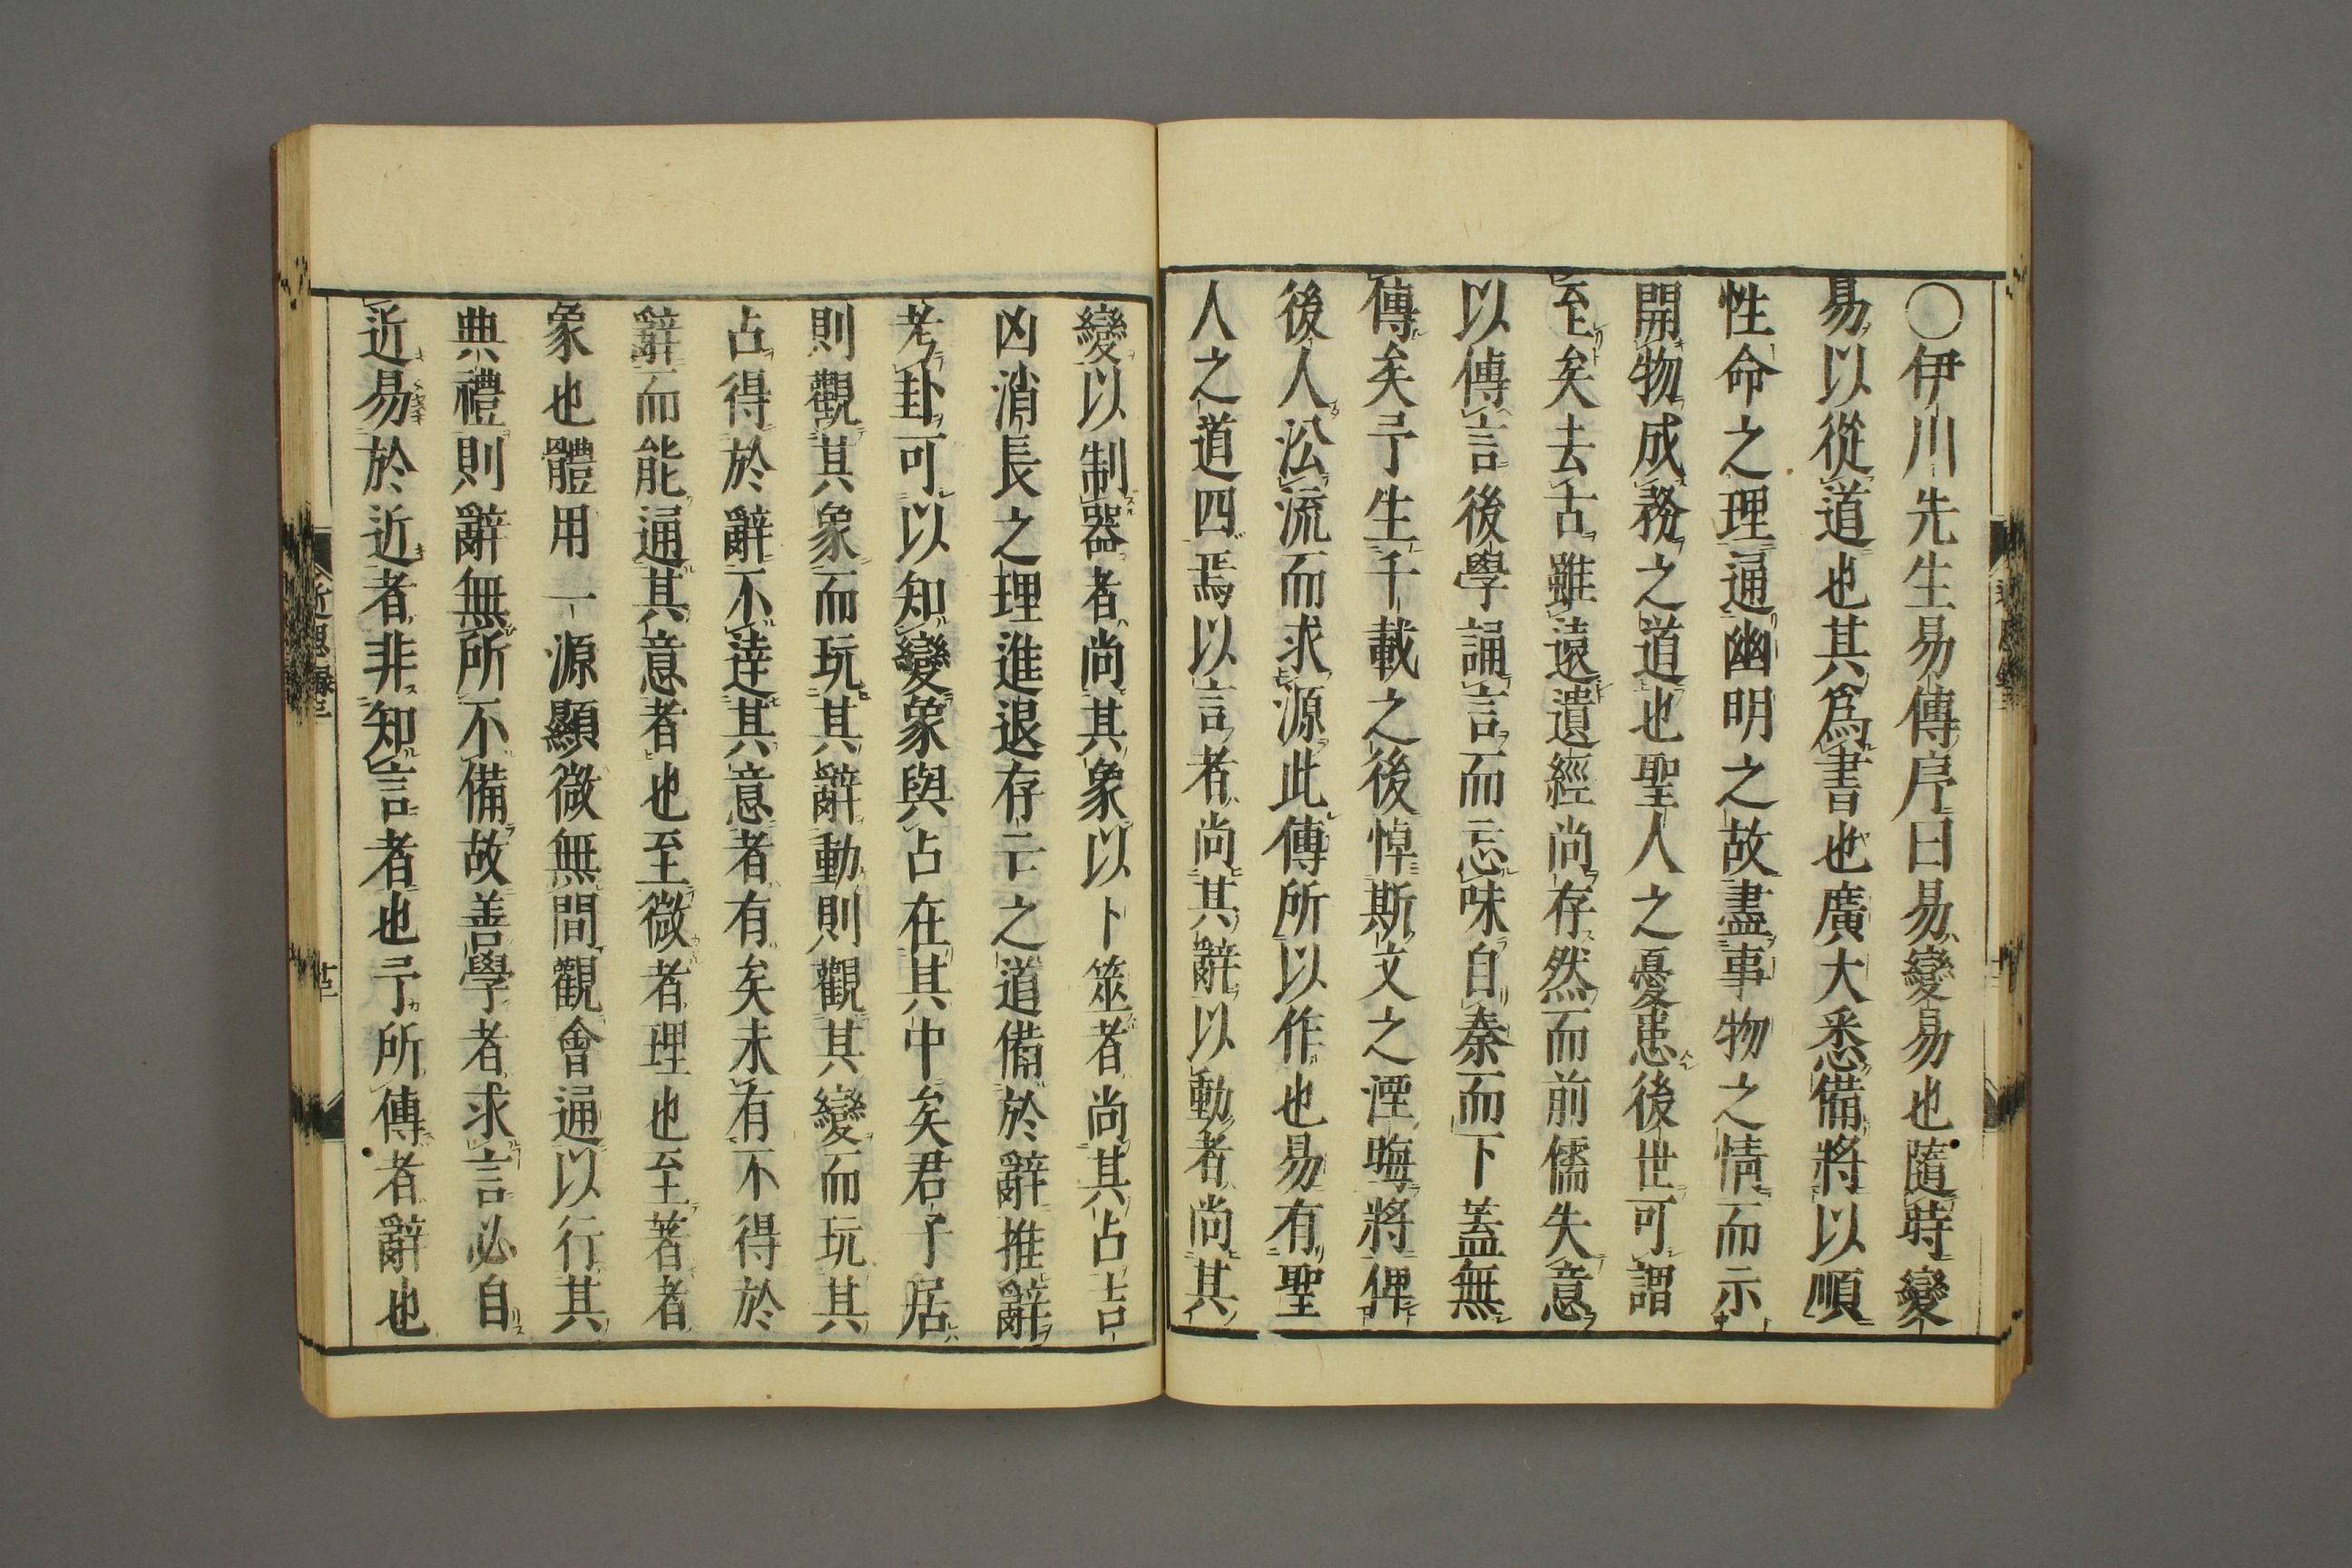 〇伊川先生易傳序曰易變易也隨時變
易以從道也其爲書也廣大悉備將以順
性命之理通幽明之故盡事物之情而示
開物成務之道也聖人之憂患後世可謂
至矣去古雖遠遺經尚存然而前儒失意
以傳言後學誦言而忘味自秦而下蓋無
傳矣予生千載之後悼斯文之湮晦將俾
後人㳂流而求源此傳所以作也易有聖
人之道四焉以言者尚其辭以動者尚其
變以制器者尚其象以卜筮者尚其占吉
凶消長之理進退存亡之道備於辭推辭
考卦可以知變象與占在其中矣君子居
則觀其象而玩其辭動則觀其變而玩其
占得於辭不逹其意者有矣未有不得於
辭而能通其意者也至微者理也至著者
象也體用一源顯微無間觀會通以行其
典禮則辭無所不備故善學者求言必自
近易於近者非知言者也予所傳者辭也
近思錄三